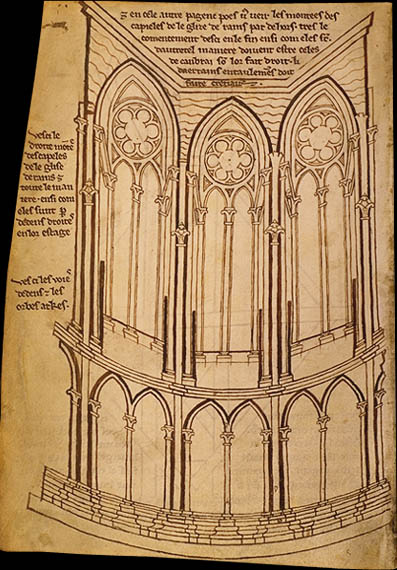 ⁊ en cele autre pagene poes vͦ veir les montees des
capieles de le glize de rains par dehors. tres le
comencement desci en le fin ensi com eles sūt.
dautretel maniere doivent estre celes
de canbrai sō lor fait droit. li
daerrains entaulemēs doit
faire cretiaus.
Vesci le
droite mōtee
des capeles
de le glise
de rains ⁊
toute le man
iere. ensi com
eles sunt p
dedens droites
en lor estage
Vesci les voies
dedens ⁊ les
orbes arkes.